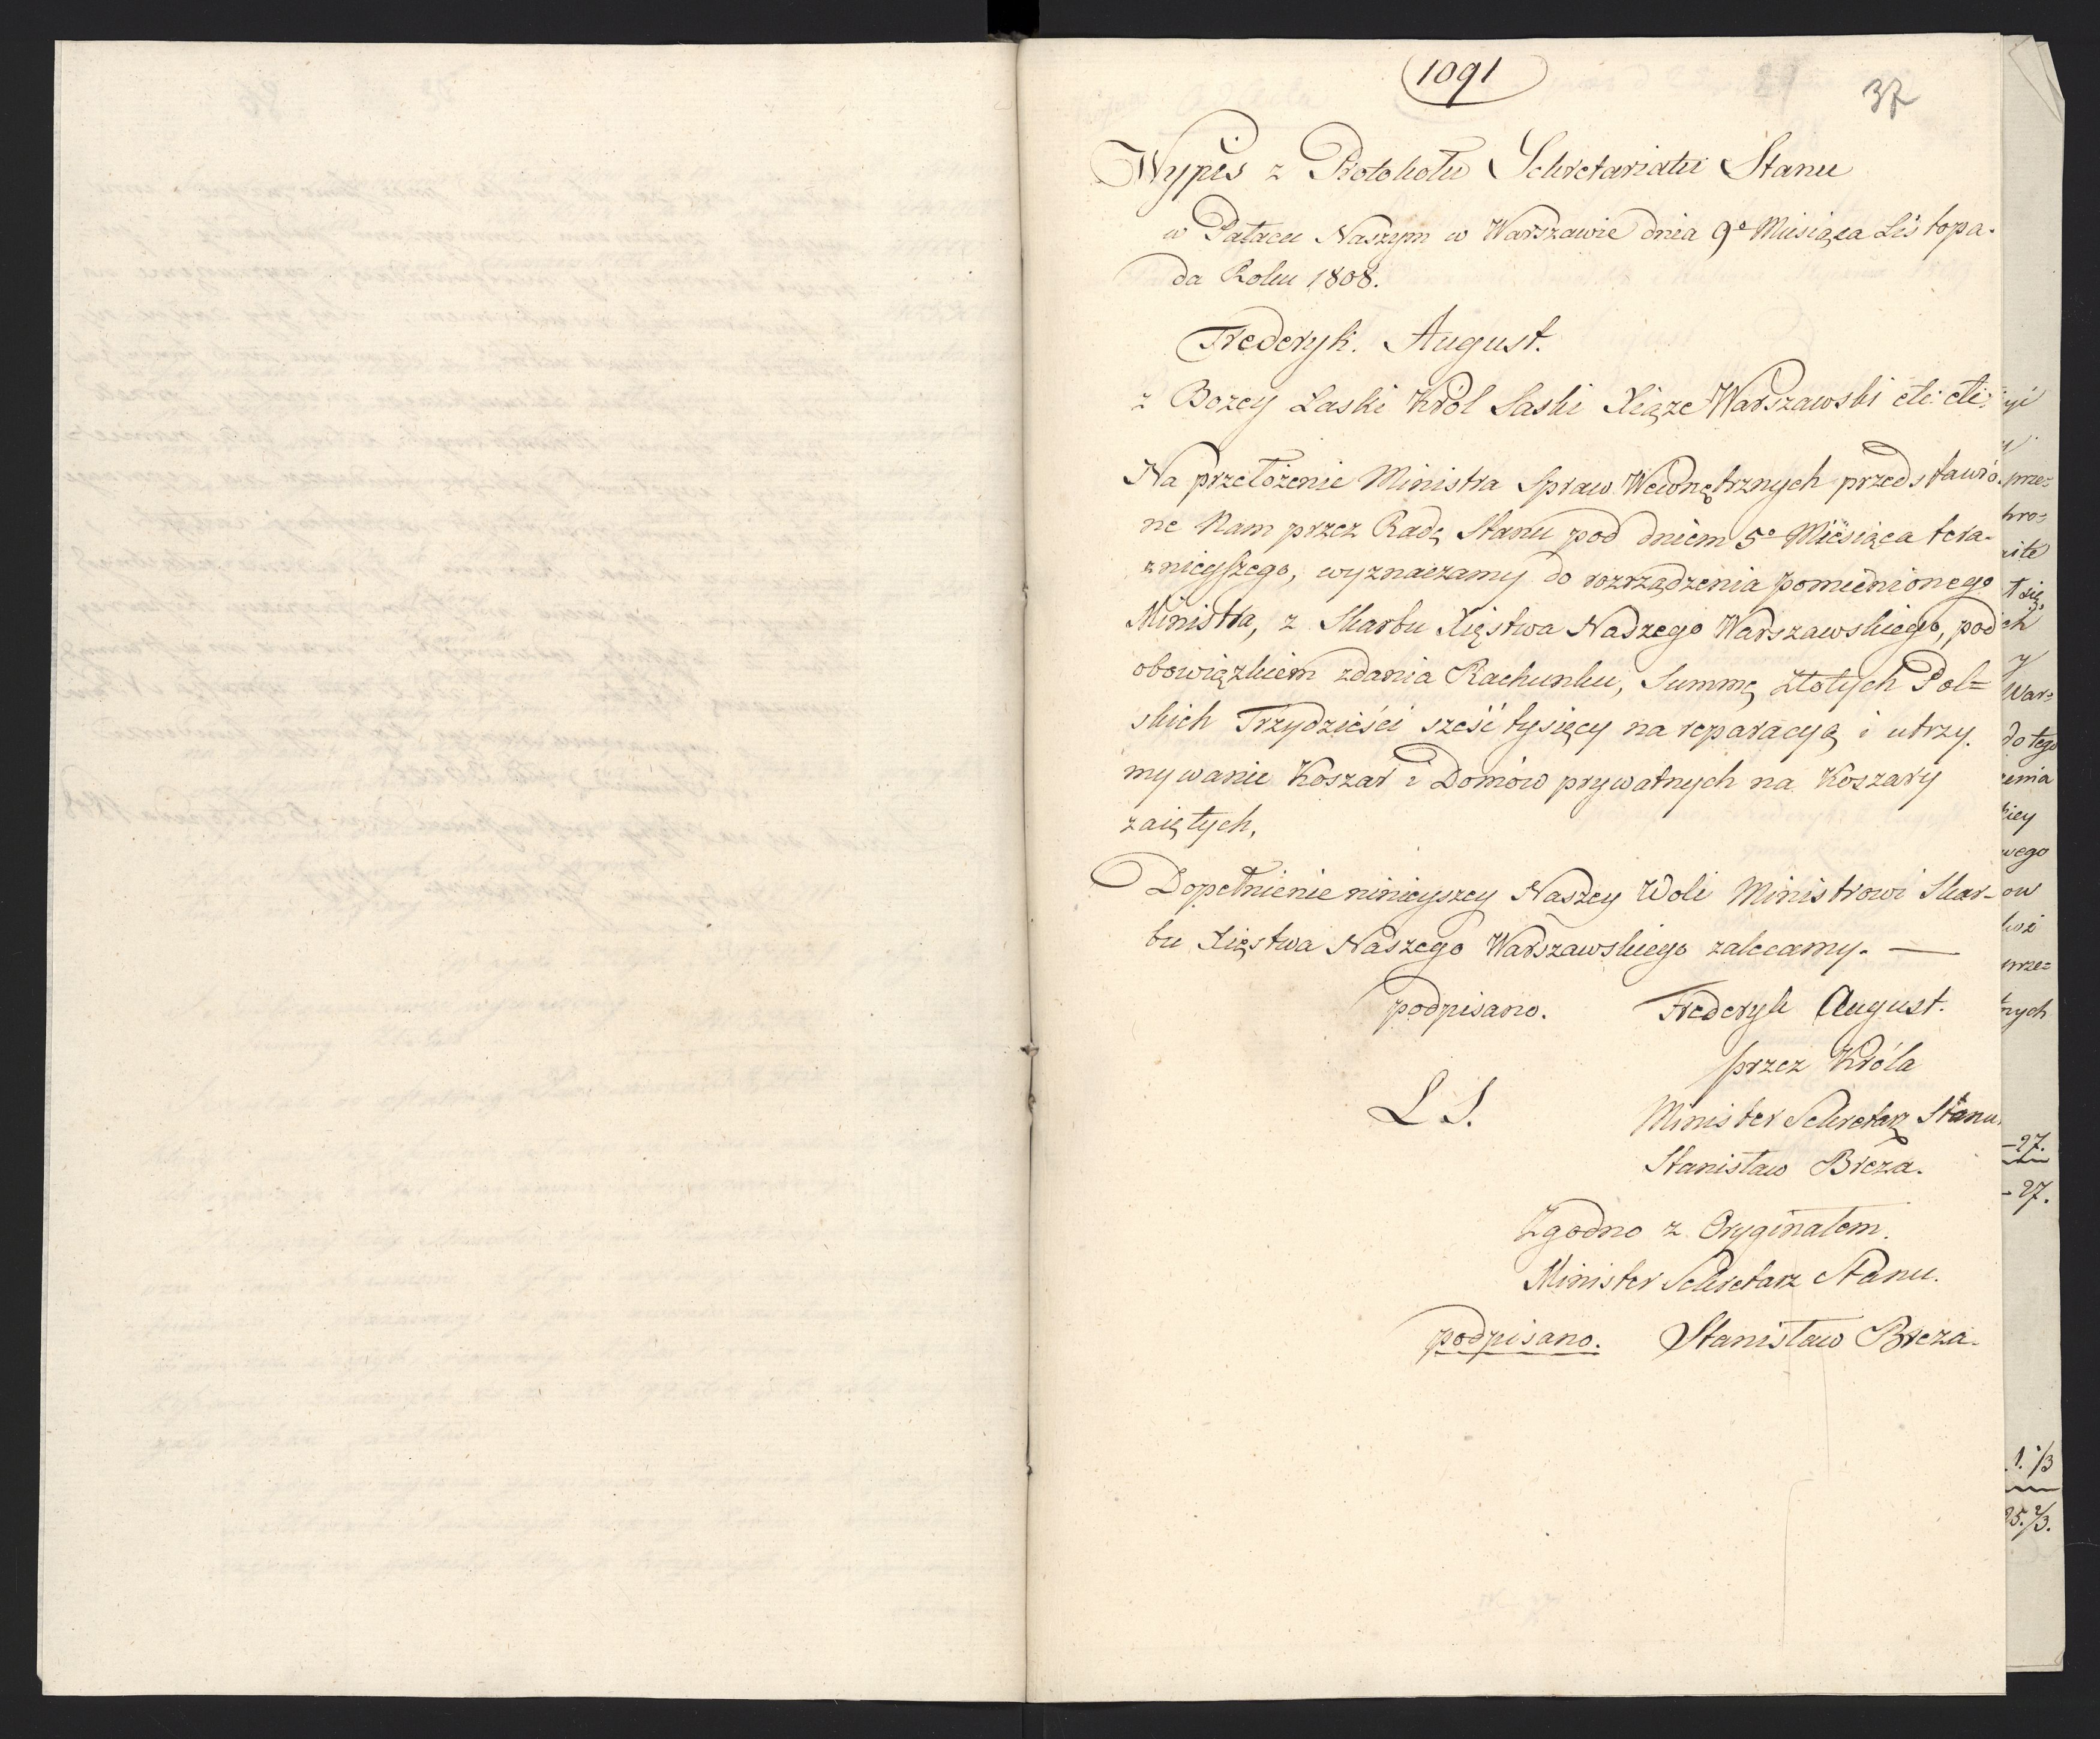 1091
37
Wypis z Protokołu Sekretariatu Stanu
w Pałacu Naszym w Warszawie dnia 9º Miesiąca Listopa-
da Roku 1808.
Frederyk. August.
z Bozey Laski Król Saski Xiąze Warszawski etc: etc:
Na przełożenie Ministra Spraw Wewnętrznych przedstawio-
ne Nam przez Radę Stanu pod dniem 5º Miesiąca tera-
znieyszego, wyznaczamy do rozrządzenia pomienionego
Ministra, z Skarbu Xięstwa Naszego Warszawskiego, pod
obowiązkiem zdania Rachunku, Summę Złotych Pol=
skich Trzydzieści sześć tysięcy na reparacyą i utrzy-
mywanie Koszar i Domów prywatnych na Koszary
zaiętych.
Dopełnienie ninieyszey Naszey Woli Ministrowi Skar-
bu Xięstwa Naszego Warszawskiego zalecamy. —
podpisano. Frederyk August.
przez Króla
L S. Minister Sekretarz Stanu.
Stanisław Breza.
Zgodno z Oryginałem.
Minister Sekretarz Stanu.
podpisano. Stanisław Breza.